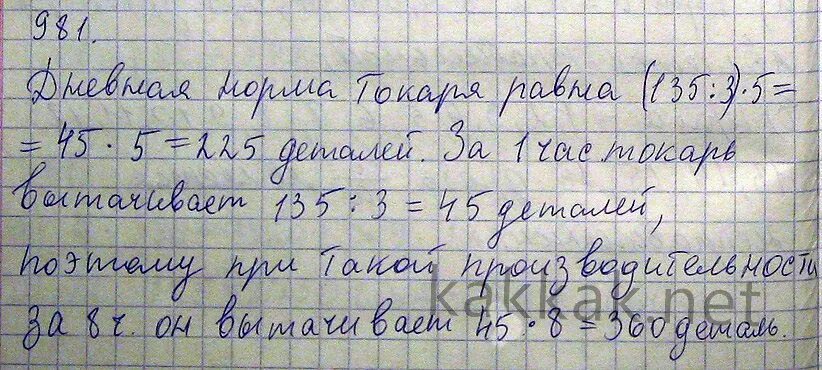 981.
Дневная норма токаря равна (135:3)·5=
= 45 · 5 = 225 деталей. За 1 час токарь
вытачивает 135 : 3 = 45 деталей,
поэтому при такой производительности
kakkak.net
за 8 ч. он вытачивает 45 · 8 = 360 деталь.